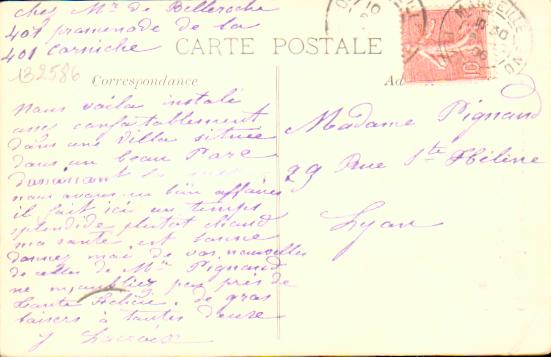 chez Mr de Belleroche
401 promenade de la
401 Corniche
CARTE POSTALE
132586
Correspondance
Nous voila installé
assez confortablement
dans une villa située
dans un beau Parc
dominant la mer
nous avons un bien affaires
il fait ici un temps
splendide plutot chaud
ma santé est bonne
donnez moi de vos nouvelles
de celles de Mr Pignaud
ne m'oubliez pas près de
tante Hélène. de gros
baisers à toutes deux
Madame Pignaud
29 Rue Ste Hélène
Lyon
MARSEILLE
10